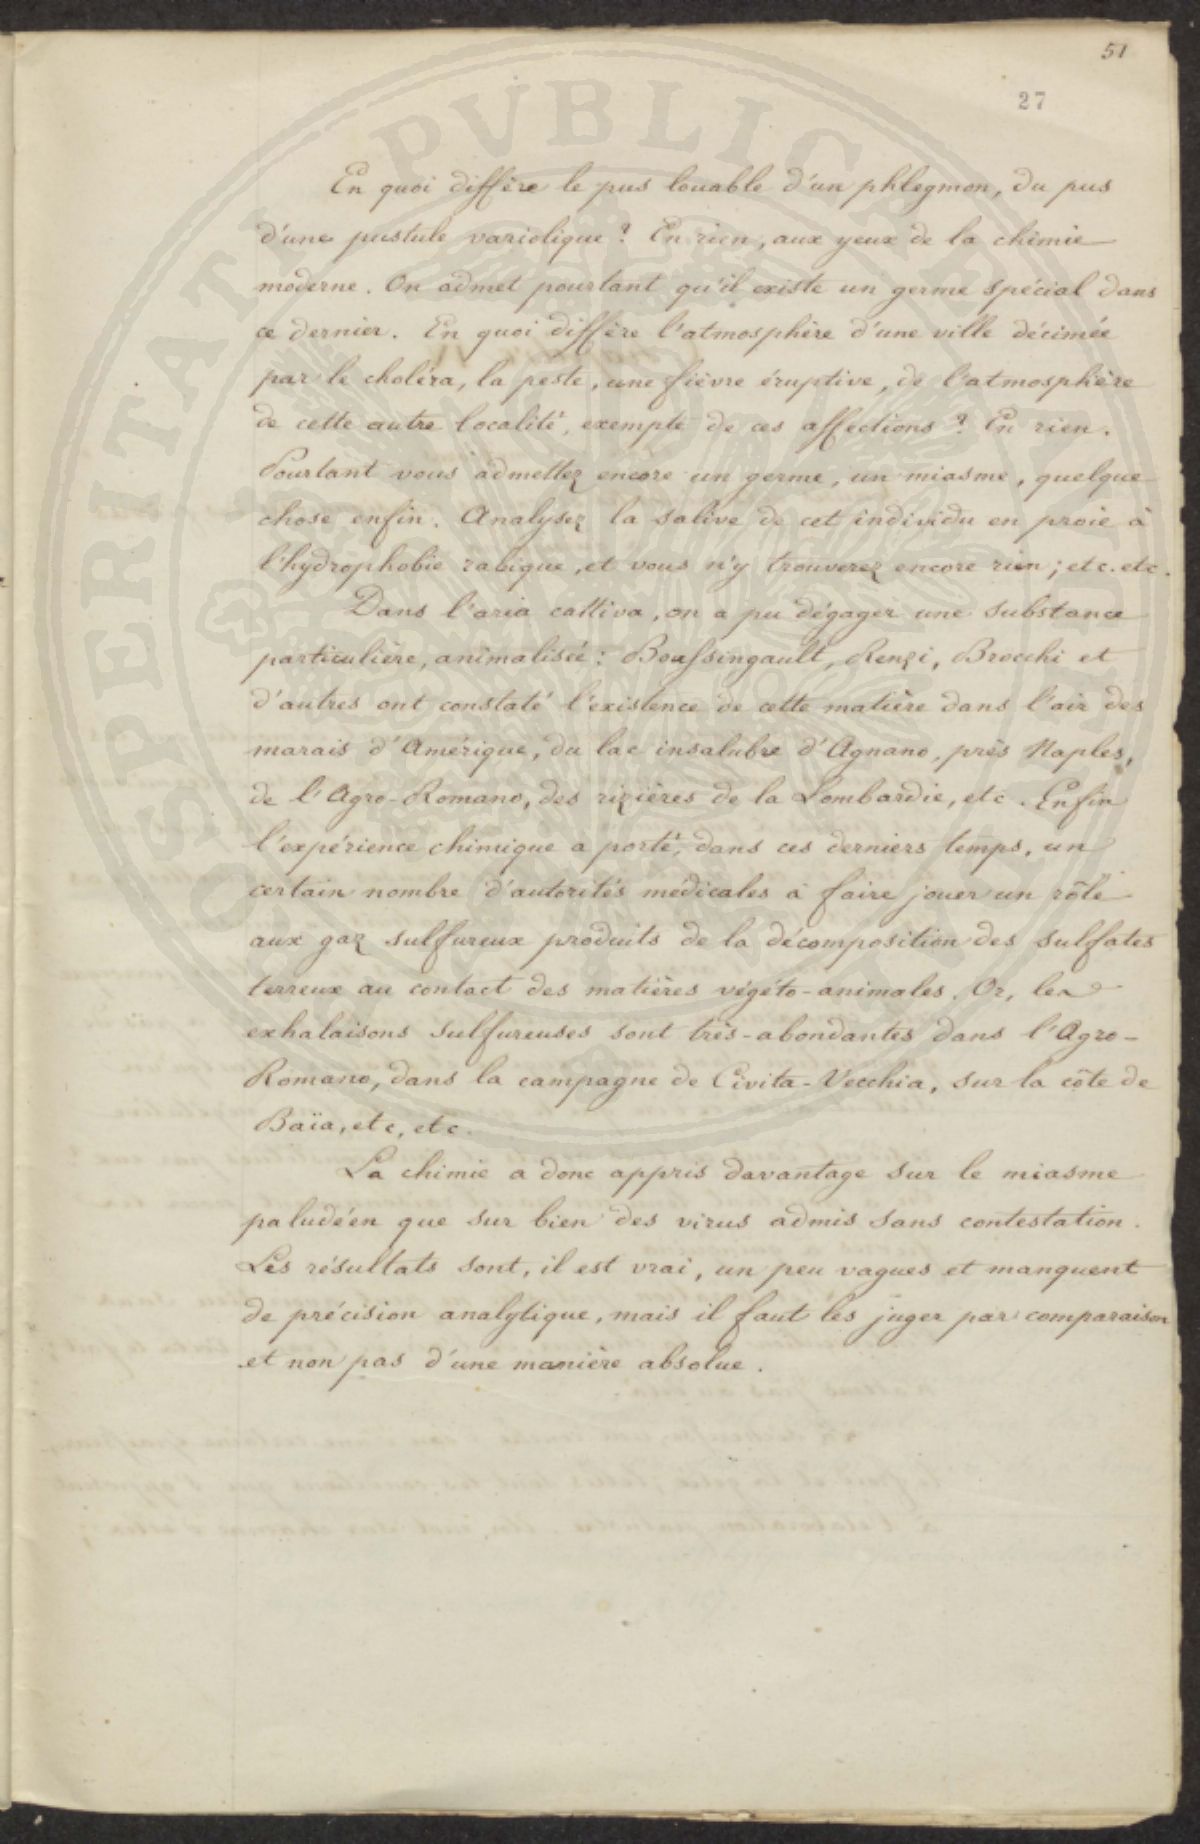 51
27
En quoi diffère le pus louable d'un phlegmon, du pus
d'une pustule variolique ? En rien, aux yeux de la chimie
moderne. On admet pourtant qu'il existe un germe spécial dans
ce dernier. En quoi diffère l'atmosphère d'une ville décimée
par le choléra, la peste, une fièvre éruptive, de l'atmosphère
de cette autre localité, exempte de ces affections ? En rien.
Pourtant vous admettez encore un germe, un miasme, quelque
chose enfin. Analysez la salive de cet individu en proie à
l'hydrophobie rabique, et vous n'y trouverez encore rien ; etc. etc.
Dans l'aria cattiva, on a pu dégager une substance
particulière, animalisée : Boussingault, Renzi, Brocchi et
d'autres ont constaté l'existence de cette matière dans l'air des
marais d'Amérique, du lac insalubre d'Agnano, près Naples,
de l'Agro-Romano, des rizières de la Lombardie, etc. Enfin
l'expérience chimique a porté, dans ces derniers temps, un
certain nombre d'autorités médicales à faire jouer un rôle
aux gaz sulfureux produits de la décomposition des sulfates
terreux au contact des matières végéto-animales. Or, les
exhalaisons sulfureuses sont très-abondantes dans l'Agro-
Romano, dans la campagne de Civita-Vecchia, sur la côte de
Baïa, etc, etc.
La chimie a donc appris davantage sur le miasme
paludéen que sur bien des virus admis sans contestation.
Les résultats sont, il est vrai, un peu vagues et manquent
de précision analytique, mais il faut les juger par comparaison
et non pas d'une manière absolue.